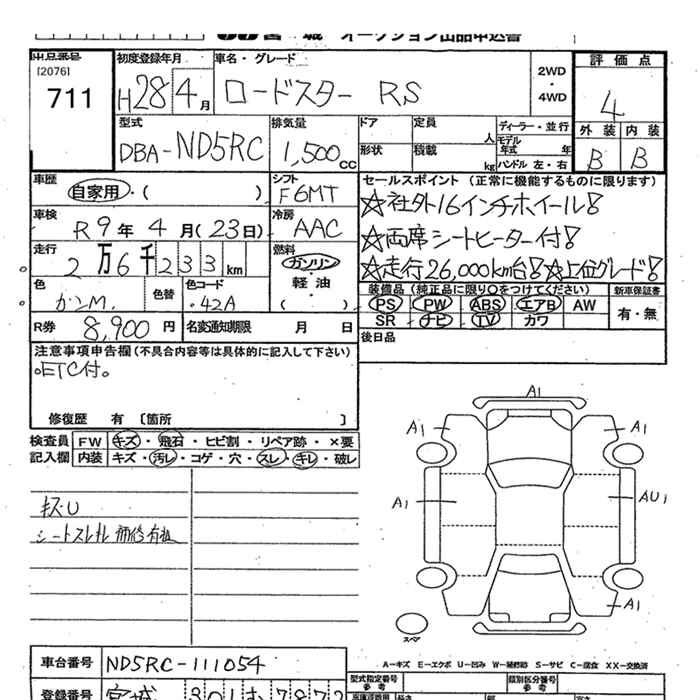 宮城 オークション出品申込書
出品番号
[2076]
711
初度登録年月
H28年4月
車名・グレード
ロードスター RS
2WD
・
4WD
評価点
4
外装 内装
B B
型式
DBA-ND5RC
排気量
1,500cc
ドア 定員 人
形状 積載 kg
ディーラー・並行
モデル年式 年
ハンドル 左・右
車歴
自家用・( )
シフト
F6MT
車検
R9年4月(23日)
冷房
AAC
走行
2万6千233km
燃料
ガソリン・軽油
( )
色
ガンM.
色替
色コード
.42A
R券 8,900円
名変通知期限 月 日
セールスポイント (正常に機能するものに限ります)
☆社外16インチホイール!
☆両席シートヒーター付!
☆走行26,000km台!☆上位グレード!☆
装備品(純正品に限り○をつけてください)
PS PW ABS エアB AW
SR ナビ TV カワ
新車保証書
有・無
後日品
注意事項申告欄(不具合内容等は具体的に記入して下さい)
。ETC付。
修復歴 有 〔箇所 〕
検査員記入欄
FW キズ・飛石・ヒビ割・リペア跡・×要
内装 キズ・汚レ・コゲ・穴・スレ・キレ・破レ
キズU
シートスレキレ 補修有
A1
A1
A1
A1
AU1
A1
スペア
A-キズ E-エクボ U-凹み W-補修跡 S-サビ C-腐食 XX-交換済
車台番号 ND5RC-111054
登録番号 宮城 301
型式指定番号
参考
類別区分番号
参考